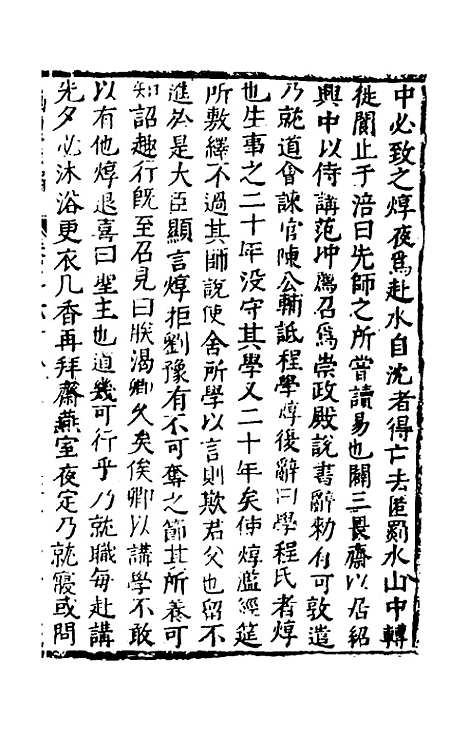 中必致之焞夜爲赴水自沈者得亡去匿劉水山中轉
徙閬止于涪曰先師之所嘗讀易也關三畏齋以居紹
興中以侍講范冲薦召爲崇政殿說書辭勑有司敦遣
乃就道會諫官陳公輔詆程學焞復辭曰學程氏者焞
也生事之二十年没守其學又二十年矣使焞濫經筵
所敷繹不過其師說使舍所學以言則欺君父也留不
進於是大臣顯言焞拒劉豫有不可奪之節其所養可
知詔趣行旣至召見曰朕渴卿久矣俟卿以講學不敢
以有他焞退喜曰聖主也道幾可行乎乃就職每赴講
先夕必沐浴更衣几香再拜齋燕室夜定乃就寢或問